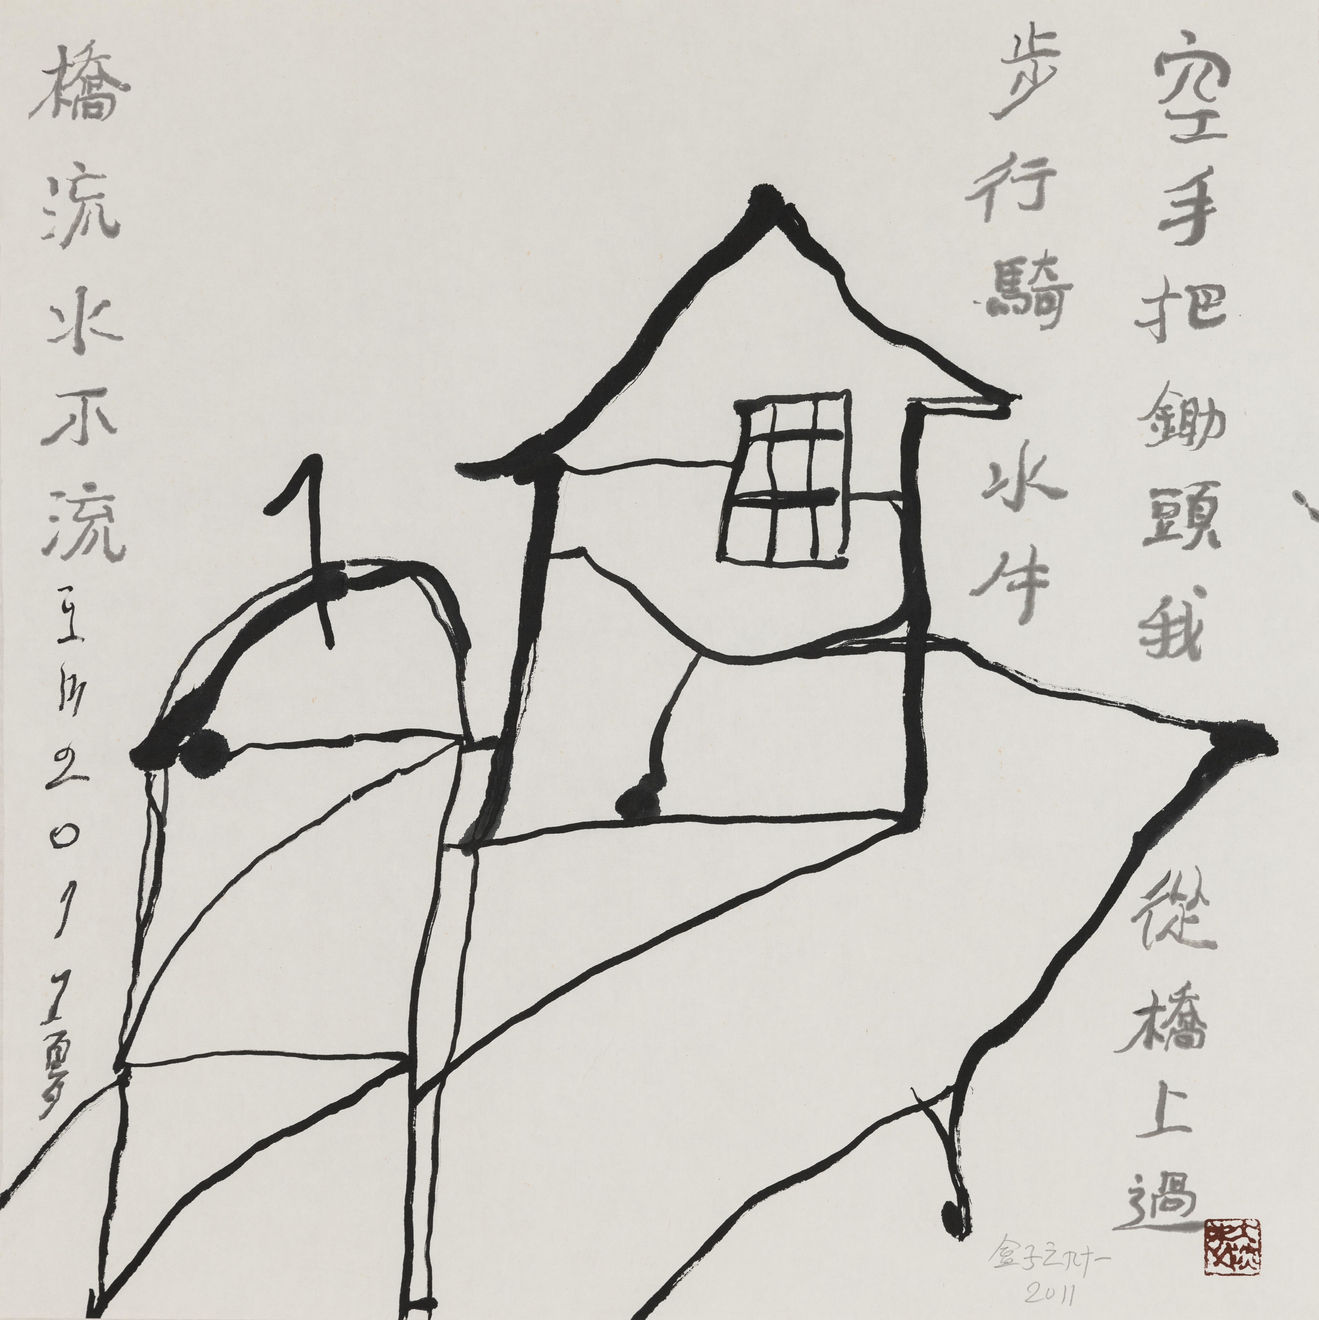 空手把鋤頭我從橋上過
步行騎水牛
橋流水不流
2011夏
盒子之九十一
2011